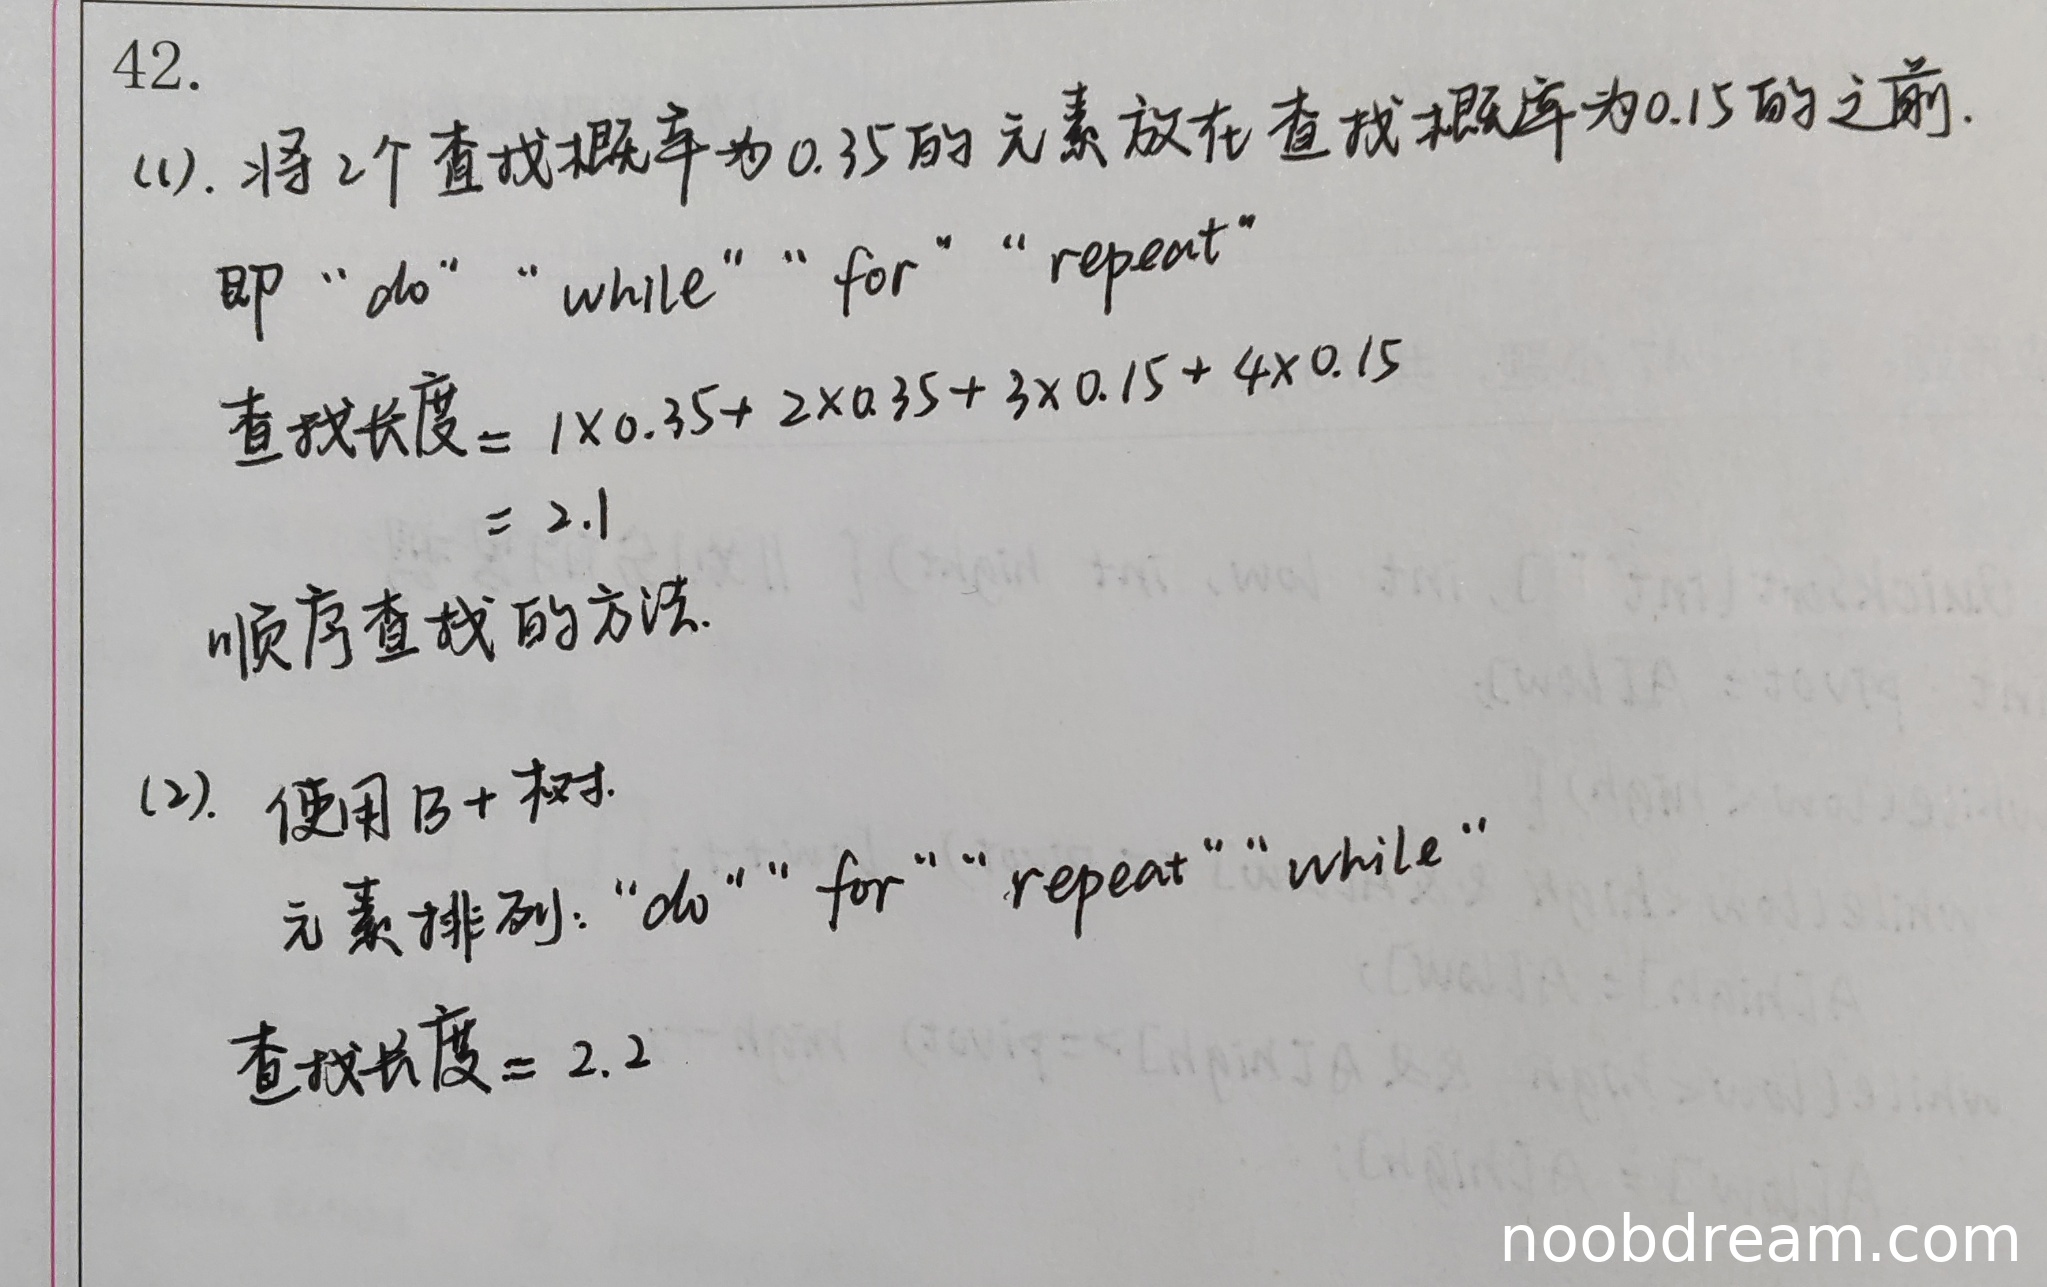 42.
(1). 将2个查找概率为0.35的元素放在查找概率为0.15的之前.
即 "do" "while" "for" "repeat"
查找长度 = 1×0.35+ 2×0.35+ 3×0.15+ 4×0.15
= 2.1
顺序查找的方法.
(2). 使用B+树.
元素排列: "do" "for" "repeat" "while"
查找长度 = 2.2
noobdream.com